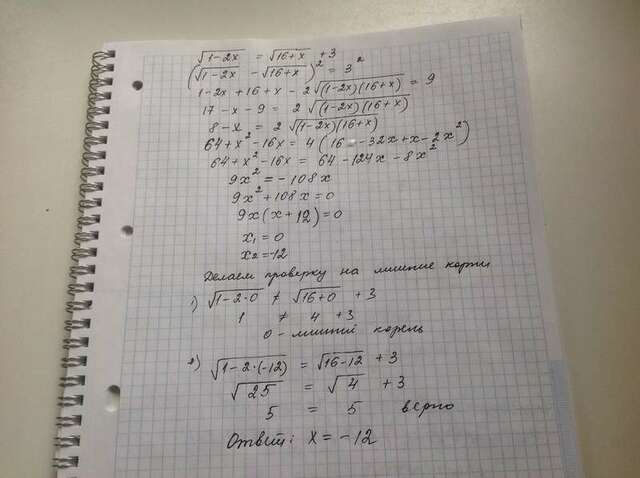 √1-2x = √16+x +3
(√1-2x - √16+x)² = 3²
1-2x+16+x-2√(1-2x)(16+x) = 9
17-x-9 = 2√(1-2x)(16+x)
8-x = 2√(1-2x)(16+x)
64+x²-16x = 4(16-32x+x-2x²)
64+x²-16x = 64-124x-8x²
9x² = -108x
9x²+108x=0
9x(x+12)=0
x₁=0
x₂=-12
Делаем проверку на лишние корни
1) √1-2·0 ≠ √16+0 +3
1 ≠ 4 +3
0 - лишний корень
2) √1-2·(-12) = √16-12 +3
√25 = √4 +3
5 = 5 верно
Ответ: x = -12